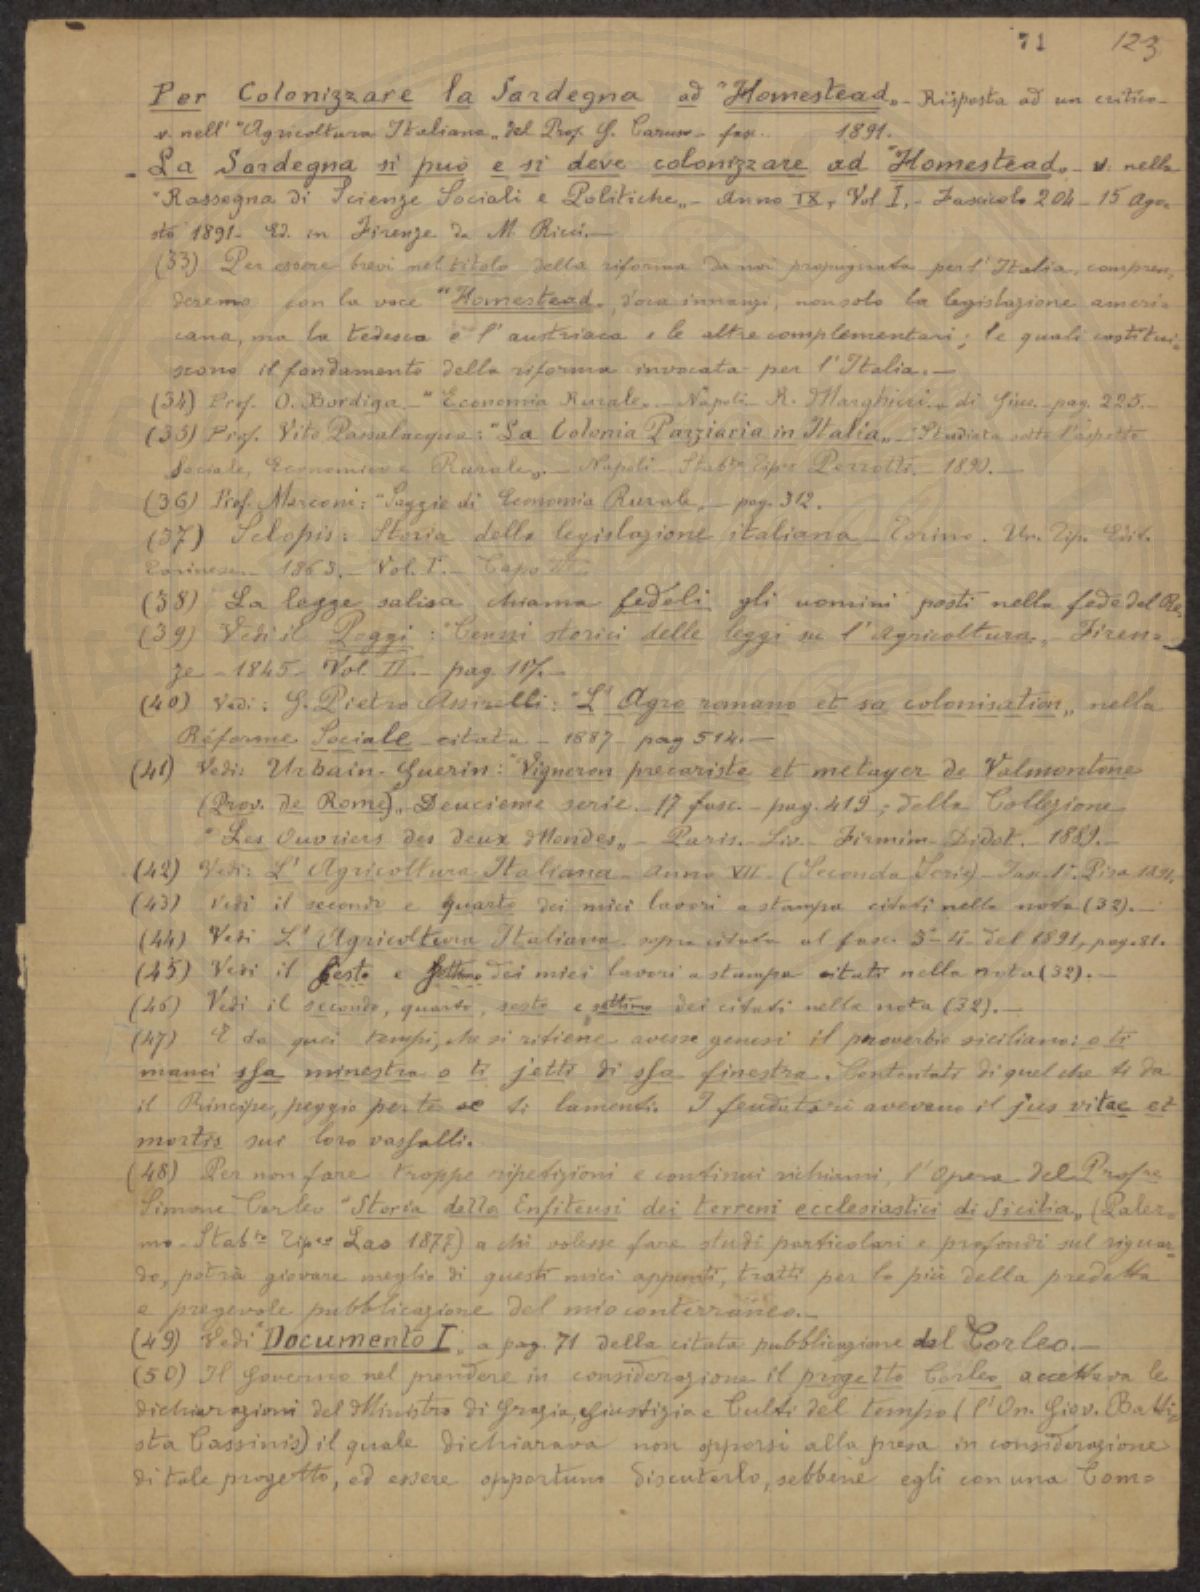 71 123
Per Colonizzare la Sardegna ad "Homestead„ - Risposta ad un critico -
v. nell' "Agricoltura Italiana„ del Prof. G. Caruso - fasc. 1891.
- La Sardegna si può e si deve colonizzare ad "Homestead„ - v. nella
"Rassegna di Scienze Sociali e Politiche„ - Anno IX, Vol I, - Fascicolo 204 - 15 Ago=
sto 1891 - Ed. in Firenze da M. Ricci. -
(33) Per essere brevi nel titolo della riforma da noi propugnata per l'Italia, compren=
deremo con la voce "Homestead„ d'ora innanzi, non solo la legislazione ameri=
cana, ma la tedesca e l'austriaca e le altre complementari; le quali costitui=
scono il fondamento della riforma invocata per l'Italia. -
(34) Prof. O. Bordiga - "Economia Rurale„ - Napoli - R. Marghieri - di Gius. - pag. 225. -
(35) Prof. Vito Passalacqua: "La Colonia Parziaria in Italia„ - Studiata sotto l'aspetto
Sociale, Economico e Rurale„. - Napoli - Stabto Tipco Perrotti - 1890. -
(36) Prof. Marconi: "Saggio di Economia Rurale„ - pag. 312.
(37) Sclopis: Storia della legislazione italiana - Torino. Un. Tip. Edit.
Torinese - 1863. - Vol. I. - Capo
(38) La legge salica chiama fedeli gli uomini posti nella fede del Re.
(39) Vedi il Poggi: "Cenni storici delle leggi su l'Agricoltura„ - Firen=
ze - 1845 - Vol. II. - pag. 117. -
(40) Vedi: G. Pietro Assirelli: "L'Agro romano et sa colonisation„ nella
Réforme Sociale citata - 1887 - pag 514. -
(41) Vedi: Urbain-Guerin: "Vigneron precariste et metayer de Valmontone
(Prov. de Rome)„ Deucieme serie. - 17 fasc. - pag. 419; della Collezione
"Les Ouvriers des deux Mondes„ - Paris. - Liv. - Firmim-Didot. 1889. -
(42) Vedi: L'Agricoltura Italiana - Anno VII - (Seconda Serie) - Fasc. 1°. Pisa 1891.
(43) Vedi il secondo e quarto dei miei lavori a stampa citati nella nota (32). -
(44) Vedi L'Agricoltura Italiana sopra citata al fasc. 3°-4° del 1891, pag. 81.
(45) Vedi il sesto e settimo dei miei lavori a stampa citati nella nota (32). -
(46) Vedi il secondo, quarto, sesto e settimo dei citati nella nota (32). -
(47) E da quei tempi, che si ritiene avesse genesi il proverbio siciliano: o ti
manci ssa minestra o ti jetti di ssa finestra. Contentati di quel che ti da
il Principe, peggio per te se ti lamenti. I feudatari avevano il jus vitae et
mortis sui loro vassalli.
(48) Per non fare troppe ripetizioni e continui richiami, l'Opera del Profre
Simone Corleo "Storia della Enfiteusi dei terreni ecclesiastici di Sicilia„ (Paler=
mo - Stabto Tipco Lao 1877) a chi volesse fare studi particolari e profondi sul riguar=
do, potrà giovare meglio di questi miei appunti, tratti per lo più della predetta
e pregevole pubblicazione del mio conterraneo. -
(49) Vedi "Documento I„ a pag. 71 della citata pubblicazione del Corleo. -
(50) Il Governo nel prendere in considerazione il progetto Corleo accettava le
dichiarazioni del Ministro di Grazia, Giustizia e Culti del tempo (l'On. Giov. Batti=
sta Cassinis) il quale dichiarava non opporsi alla presa in considerazione
di tale progetto, ed essere opportuno discuterlo, sebbene egli con una Com=